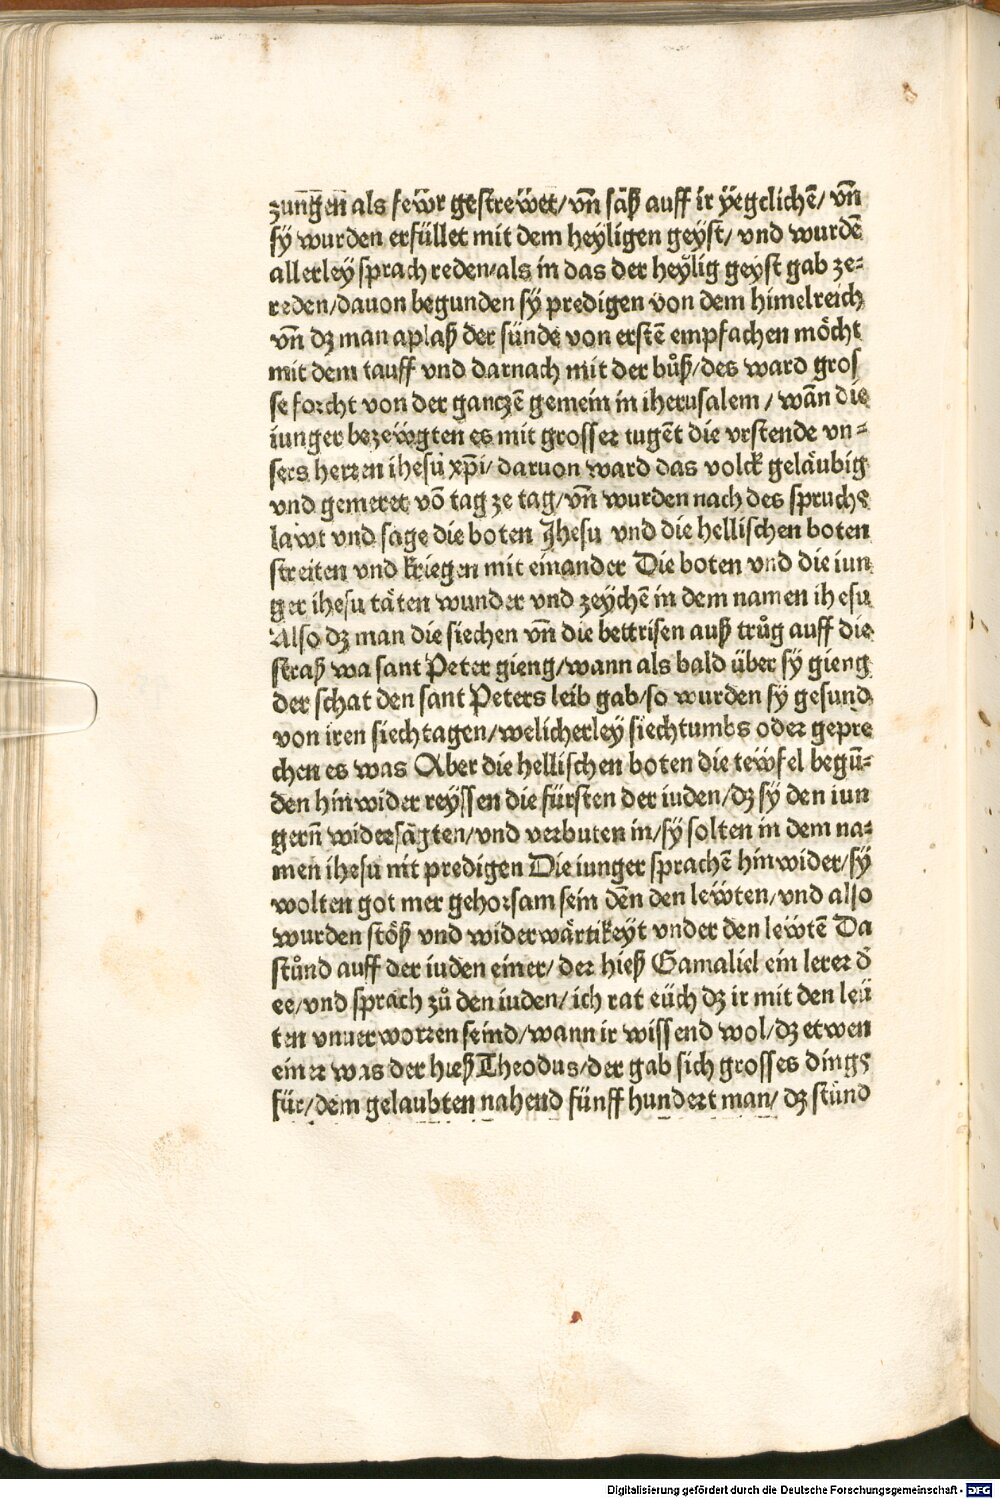 zungen als fewr gestrewet/ vñ saß auff ir yegclichẽ/ vñ
sÿ wurden erfüllet mit dem heÿligen geÿst/ vnd wurdẽ
allerleÿ sprach reden/als in das der heÿlig geyst gab ze⸗
reden/dauon begunden sÿ predigen von dem himelreich
vñ dz man aplaß der sünde von erstẽ empfachen möcht
mit dem tauff vnd darnach mit der bůß/des ward gros
se forcht von der ganczẽ gemein in iherusalem / wañ die
iunger bezewgten es mit grosser tugẽt die vrstende vn⸗
sers herren ihesu xp̄i/ daruon ward das volck geläubig
vnd gemeret võ tag ze tag/ vñ wurden nach des spruchs
lawt vnd sage die boten Jhesu vnd die hellischen boten
streiten vnd kriegen mit einander Die boten vnd die iun
ger ihesu täten wunder vnd zeÿchẽ in dem namen ihesu
Also dz man die siechen vñ die bettrisen auß trůg auff die
straß wa sant Peter gieng/wann als bald über sÿ gieng
der schat den sant Peters leib gab/so wurden sÿ gesund
von iren siechtagen/welicherleÿ siechtumbs oder gepre
chen es was Aber die hellischen boten die tewfel begũ⸗
den hinwider reÿssen die fürsten der iuden/dz sÿ den iun
gerñ widersagten/vnd verbuten in/sÿ solten in dem na⸗
men ihesu nit predigen Die iunger sprachẽ hinwider/sÿ
wolten got mer gehorsam sein deñ den lewten/vnd also
wurden stöß vnd widerwärtikeyt vnder den lewtẽ Da
stůnd auff der iuden einer/ der hieß Gamaliel ein lerer d̕
ee/vnd sprach zů den iuden/ ich rat eüch dz ir mit den leü
ten vnuerworren seind/wann ir wissend wol/dz etwen
einer was der hieß Theodus/der gab sich grosses dings
für/dem gelaubten nahend fünff hundert man/ dz stůnd
Digitalisierung gefördert durch die Deutsche Forschungsgemeinschaft - DFG